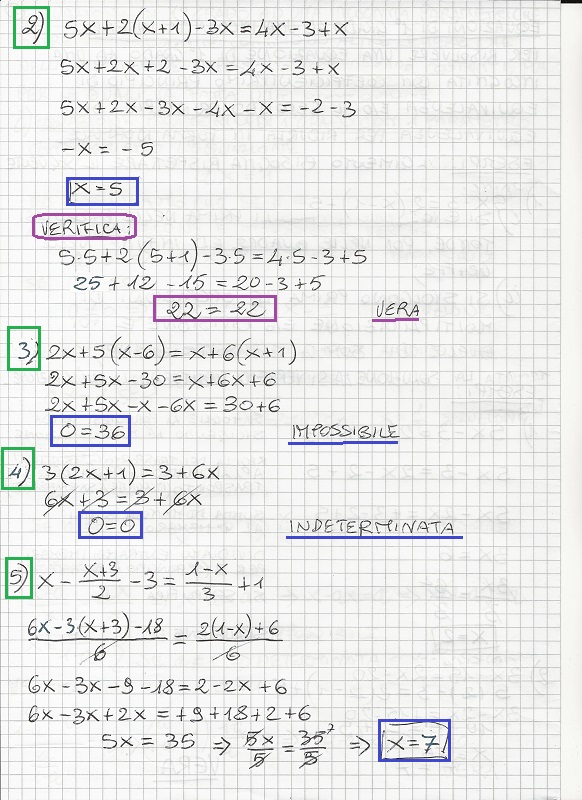 2) 5x+2(x+1)-3x=4x-3+x
5x+2x+2-3x=4x-3+x
5x+2x-3x-4x-x=-2-3
-x=-5
x=5
VERIFICA:
5·5+2(5+1)-3·5=4·5-3+5
25+12-15=20-3+5
22=22 VERA
3) 2x+5(x-6)=x+6(x+1)
2x+5x-30=x+6x+6
2x+5x-x-6x=30+6
0=36 IMPOSSIBILE
4) 3(2x+1)=3+6x
6x+3=3+6x
0=0 INDETERMINATA
5) x-\frac{x+3}{2}-3=\frac{1-x}{3}+1
\frac{6x-3(x+3)-18}{6}=\frac{2(1-x)+6}{6}
6x-3x-9-18=2-2x+6
6x-3x+2x=+9+18+2+6
5x=35 ⇒ \frac{5x}{5}=\frac{35}{5} 7 ⇒ x=7